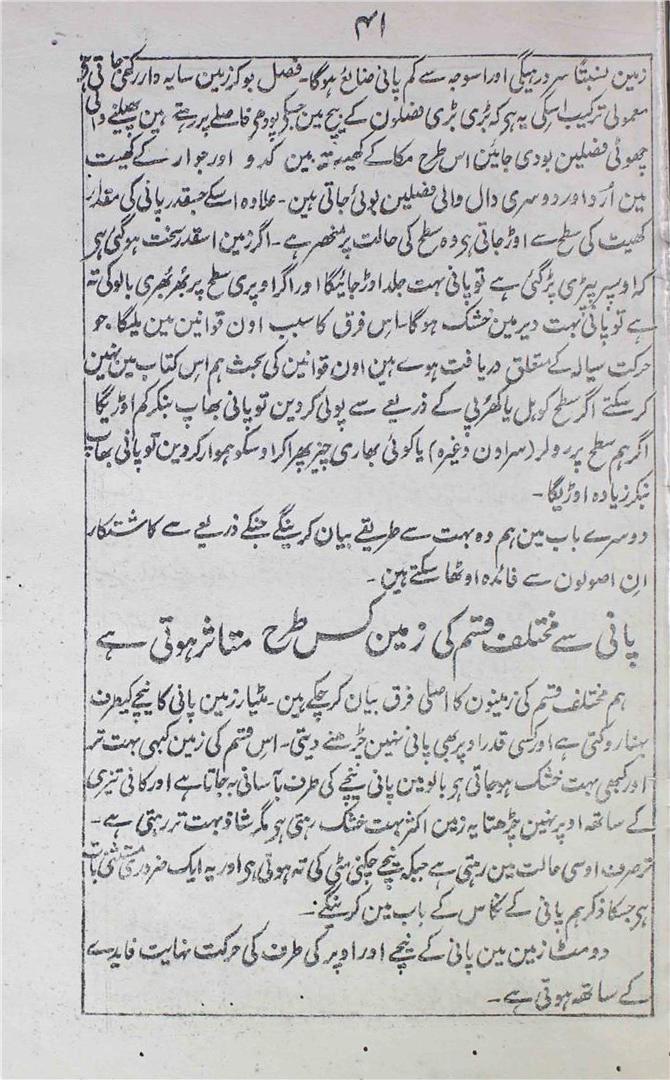 ۴۱
زمین نسبتاً سرد رہیگی اور اسوجہ سے کم پانی ضائع ہوگا۔ فصل بوکر زمین سایہ دار رکھی جاتی ہے
معمولی ترکیب اسکی یہ ہی کہ بڑی بڑی فصلون کے بیچ مین جسکے پودھے فاصلے پر رہتے ہین پھیلنے والی
چھوٹی فصلین بودی جائین اس طرح مکا کے کھیت مین کدو اور جوار کے کھیت
مین اُرد اور دوسری دال والی فصلین بوئی جاتی ہین۔ علاوہ اسکے جسقدر پانی کی مقدار
کھیت کی سطح سے اوڑ جاتی ہی وہ سطح کی حالت پر منحصر ہے۔ اگر زمین اسقدر سخت ہو گئی ہی
کہ اوسپر پپڑی پڑ گئی ہے تو پانی بہت جلد اوڑ جائیگا اور اگر اوپری سطح پر بھُر بھُری بالو کی تہ
ہے تو پانی بہت دیر مین خشک ہوگا۔ اس فرق کا سبب اون قوانین مین ملیگا۔ جو
حرکت سیالہ کے متعلق دریافت ہوے ہین اون قوانین کی بحث ہم اس کتاب مین نہین
کر سکتے اگر سطح کو ہل یا کھرپی کے ذریعے سے پولی کردین تو پانی بھاپ بنکر کم اوڑیگا
اگر ہم سطح پر رولر (سراون وغیرہ) یا کوئی بھاری چیز پھرا کر اوسکو ہموار کردین تو پانی بھاپ
بنکر زیادہ اوڑیگا۔
دوسرے باب مین ہم وہ بہت سے طریقے بیان کرینگے جنکے ذریعے سے کاشتکار
اِن اصولون سے فائدہ اوٹھا سکتے ہین۔
پانی سے مختلف قسم کی زمین کس طرح متاثر ہوتی ہے
ہم مختلف قسم کی زمینون کا اصلی فرق بیان کر چکے ہین۔ مٹیار زمین پانی کا نیچے کیطرف
بہنا روکتی ہے اور کسی قدر اوپر بھی پانی نہین چڑھنے دیتی۔ اس قسم کی زمین کبھی بہت تر
اور کبھی بہت خشک ہو جاتی ہی بالو مین پانی نیچے کی طرف بآسانی بہ جاتا ہے اور کافی تیزی
کے ساتھ اوپر نہین چڑھتا یہ زمین اکثر بہت خشک رہتی ہی مگر شاذ بہت تر رہتی ہے۔
تر صرف اوسی حالت مین رہتی ہے جبکہ نیچے چکنی مٹی کی تہ ہوتی ہی اور یہ ایک ضروری مستثنیٰ بات
ہی جسکا ذکر ہم پانی کے نکاس کے باب مین کرینگے۔
دومٹ زمین مین پانی کے نیچے اور اوپر کی طرف کی حرکت نہایت فایدے
کے ساتھ ہوتی ہے۔